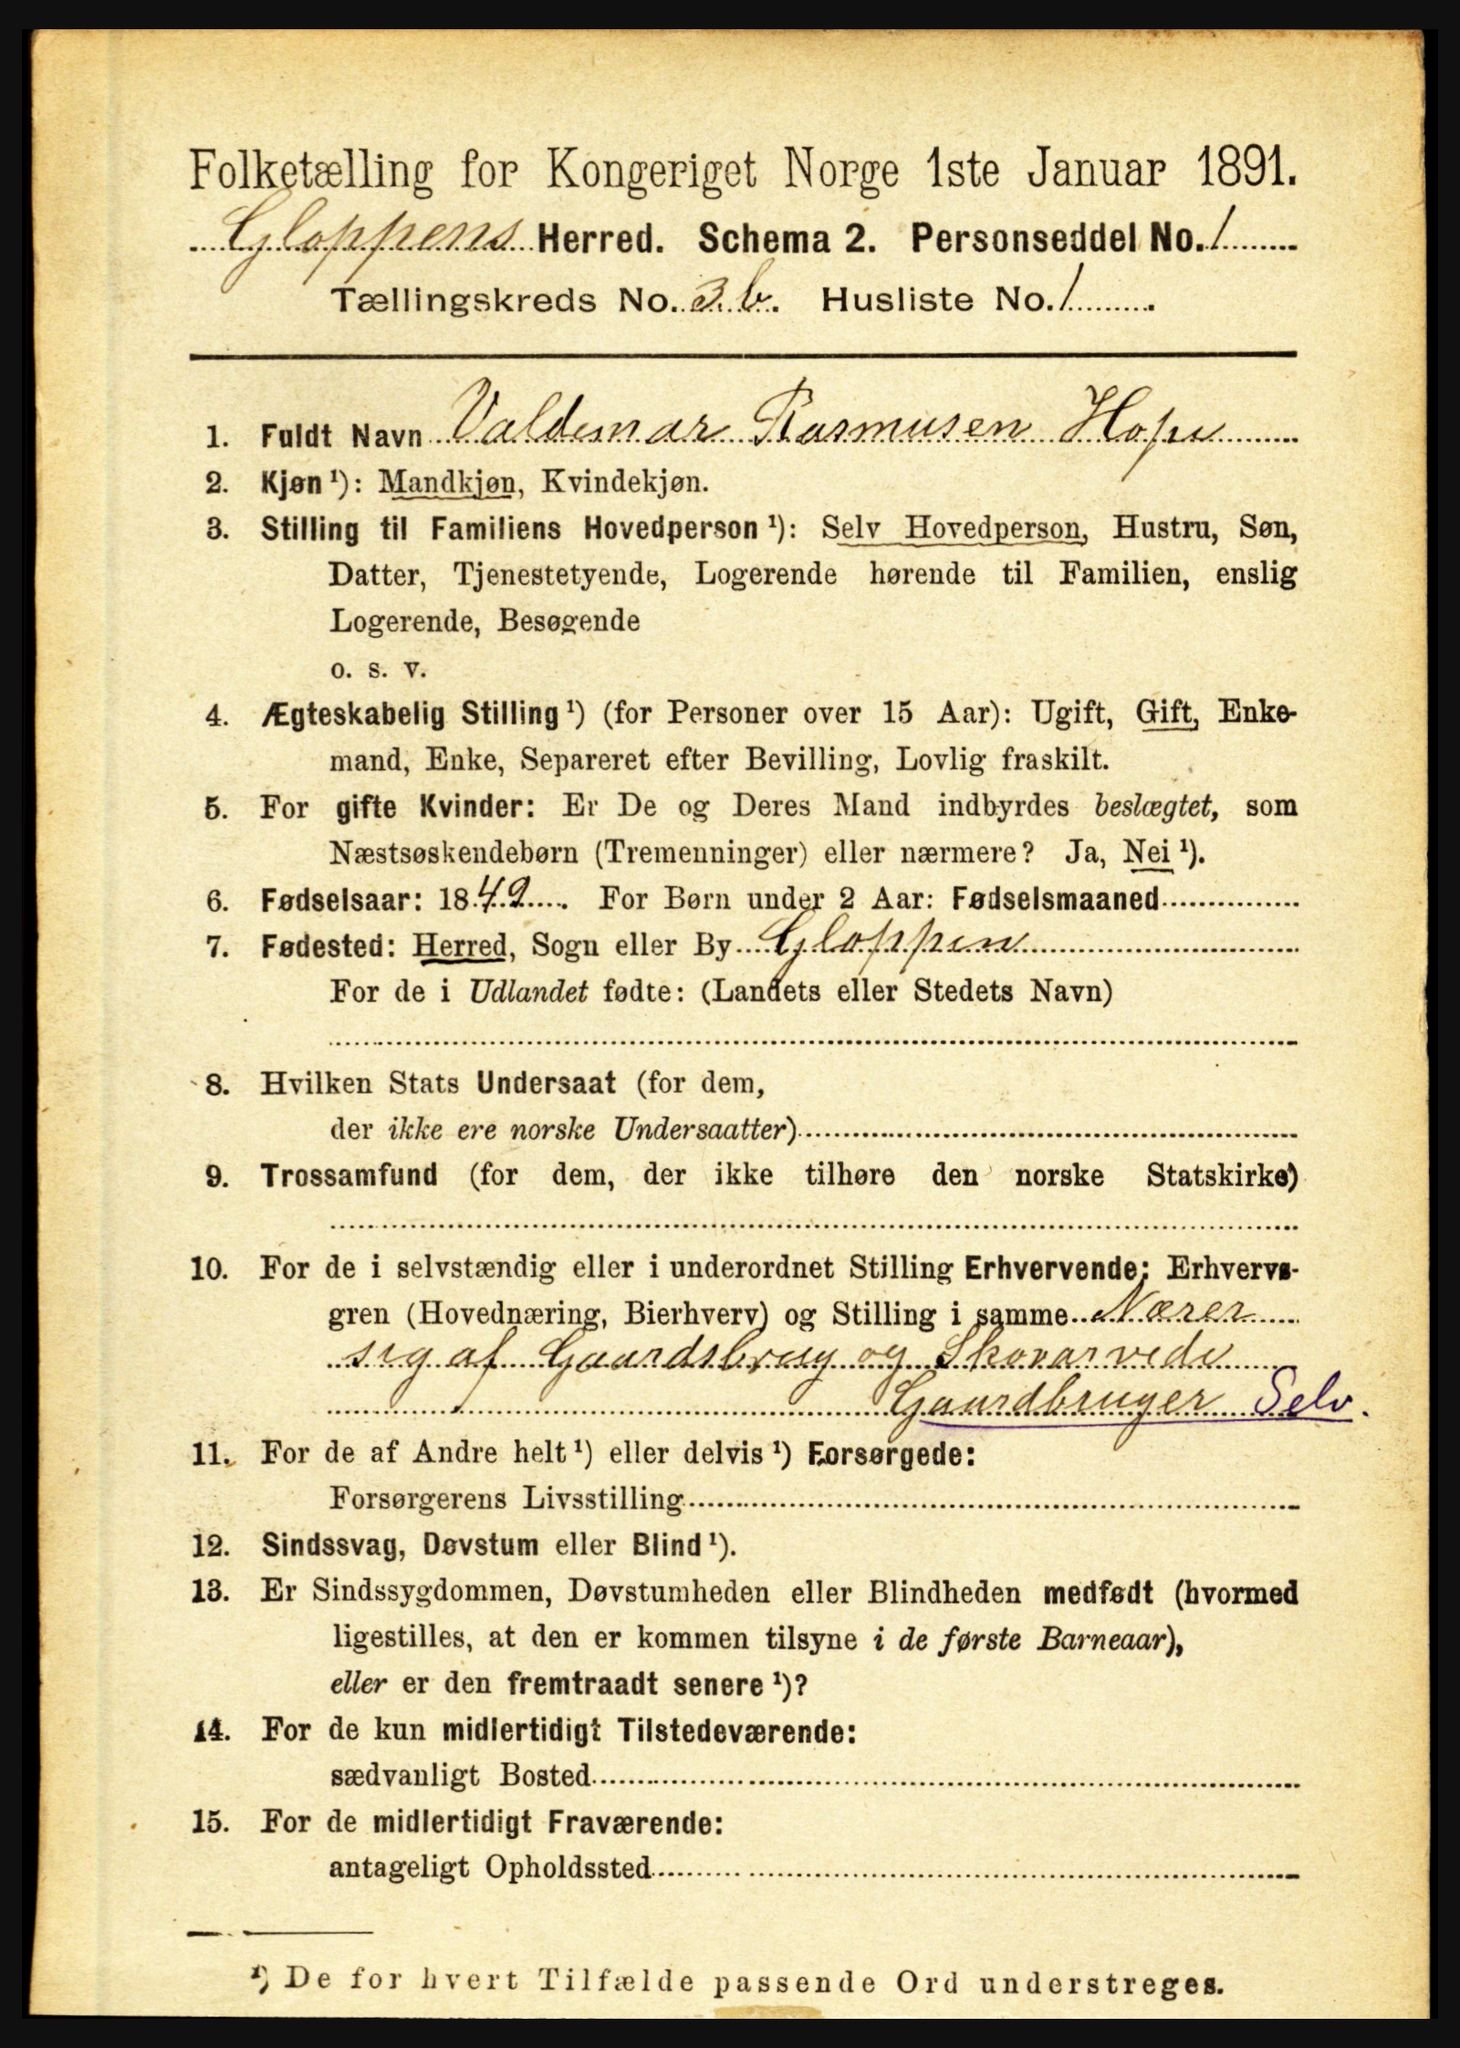 Folketælling for Kongeriget Norge 1ste Januar 1891.
Gloppens Herred. Schema 2. Personseddel No. 1
Tællingskreds No. 3 b. Husliste No. 1
1. Fuldt Navn Valdemar Rasmusen Hope
2. Kjøn¹): Mandkjøn, Kvindekjøn.
3. Stilling til Familiens Hovedperson¹): Selv Hovedperson, Hustru, Søn,
Datter, Tjenestetyende, Logerende hørende til Familien, enslig
Logerende, Besøgende
o. s. v.
4. Ægteskabelig Stilling¹) (for Personer over 15 Aar): Ugift, Gift, Enke-
mand, Enke, Separeret efter Bevilling, Lovlig fraskilt.
5. For gifte Kvinder: Er De og Deres Mand indbyrdes beslægtet, som
Næstsøskendebørn (Tremenninger) eller nærmere? Ja, Nei¹).
6. Fødselsaar: 1849. For Børn under 2 Aar: Fødselsmaaned
7. Fødested: Herred, Sogn eller By Gloppen
For de i Udlandet fødte: (Landets eller Stedets Navn)
8. Hvilken Stats Undersaat (for dem,
der ikke ere norske Undersaatter)
9. Trossamfund (for dem, der ikke tilhøre den norske Statskirke)
10. For de i selvstændig eller i underordnet Stilling Erhvervende: Erhvervs-
gren (Hovednæring, Bierhverv) og Stilling i samme Nærer
sig af Gaardsbrug og Skovarveide
Gaardbruger Selv.
11. For de af Andre helt¹) eller delvis¹) Forsørgede:
Forsørgerens Livsstilling
12. Sindssvag, Døvstum eller Blind¹).
13. Er Sindssygdommen, Døvstumheden eller Blindheden medfødt (hvormed
ligestilles, at den er kommen tilsyne i de første Barneaar),
eller er den fremtraadt senere¹)?
14. For de kun midlertidigt Tilstedeværende:
sædvanligt Bosted
15. For de midlertidigt Fraværende:
antageligt Opholdssted
¹) De for hvert Tilfælde passende Ord understreges.